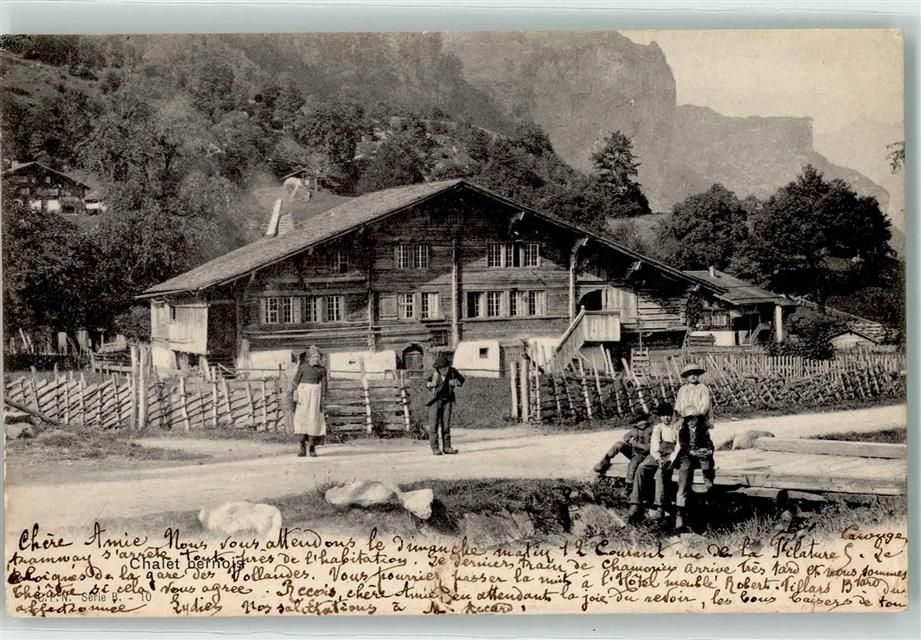 Chère Amie Nous vous attendons le Dimanche matin 12 Courant rue de la Filature 5. Carouge
tramway s'arrète tout près de l'habitation Le dernier train de Chamonix arrive très tard et nous sommes
éloignés de la gare des Vollandes. Vous pourriez passer la nuit à l'Hôtel meublé Robert-Villars Bard du
Théâtre si cela vous agrée. Recois, chère Amie en attendant la joie du revoir, les bons baisers de ton
affectionnée Lydie Nos salutations à M.
Chalet bernois
Série B. 10